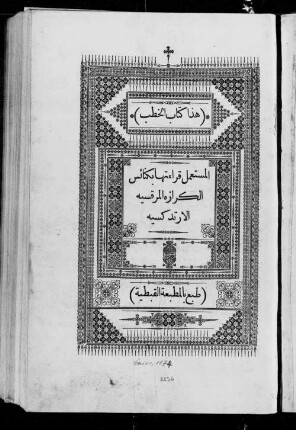 (هذا كتاب الخطب)
المستعمل قراءتها بكنائس
الكرازه المرقسيه
الارتدكسيه
(طبع بالمطبعة القبطية)